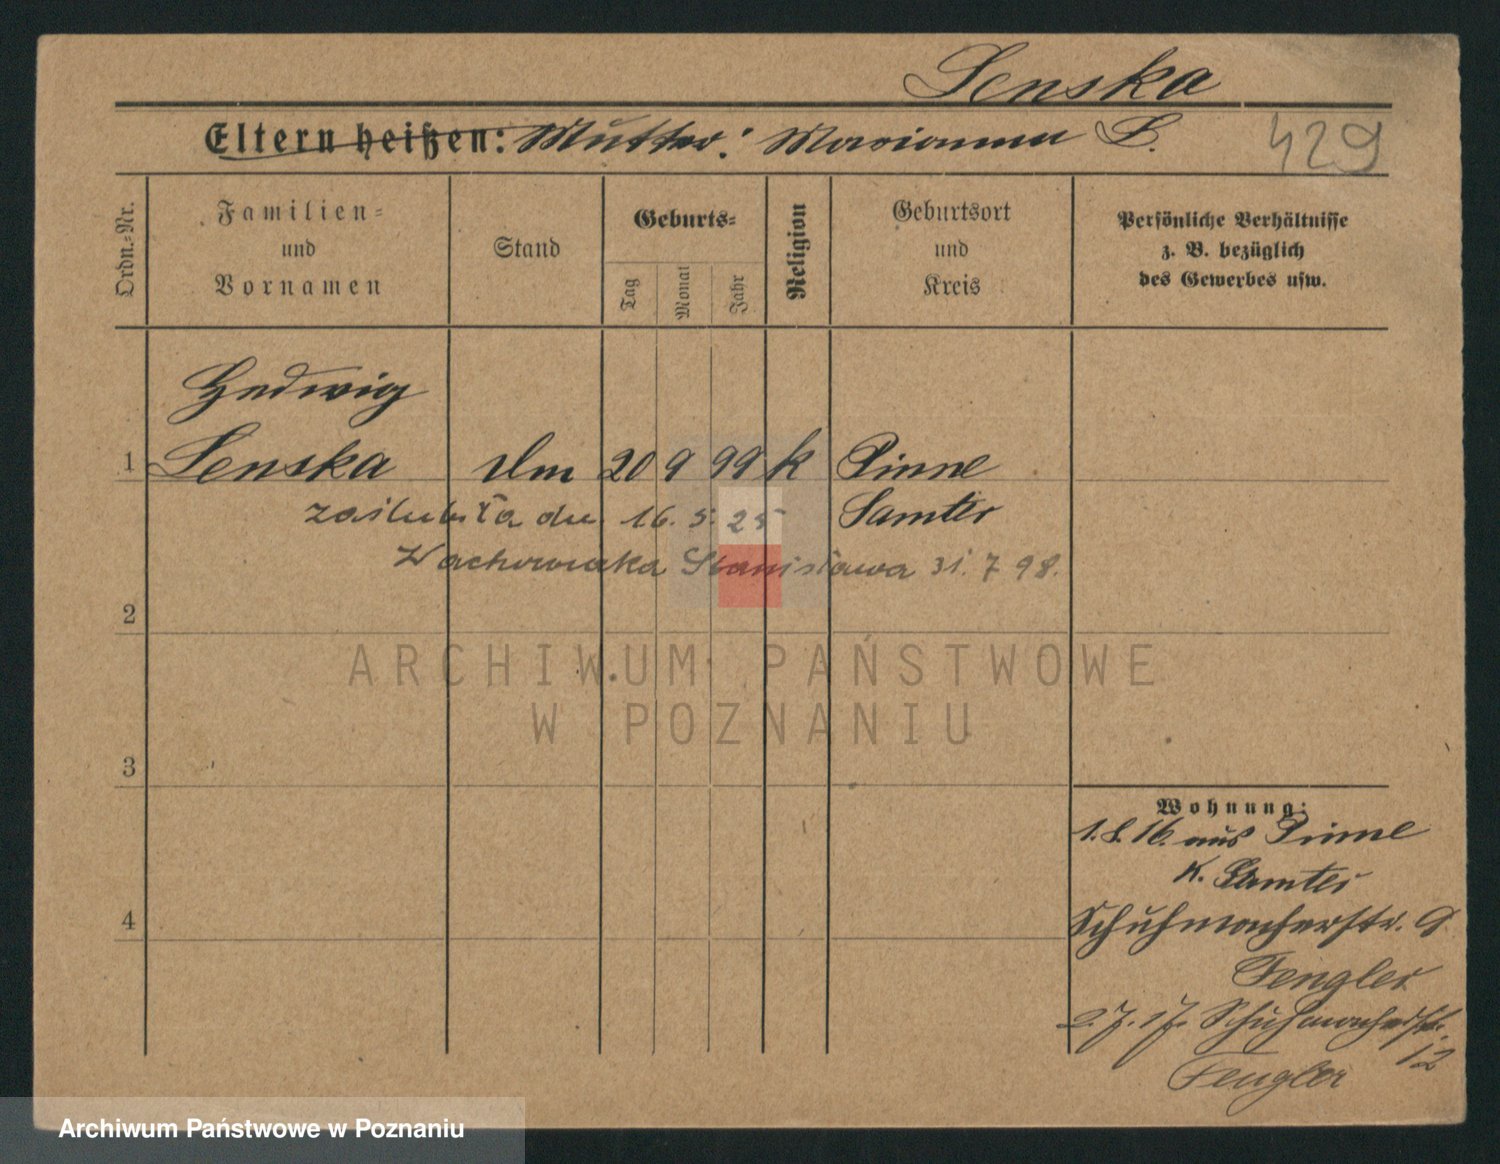 Senska
Eltern heißen: Mutter: Marianna S.
429
Ordn.-Nr.
Familien-
und
Vornamen
Stand
Geburts-
Tag
Monat
Jahr
Religion
Geburtsort
und
Kreis
Persönliche Verhältnisse
z. B. bezüglich
des Gewerbes usw.
Hedwig
1 Senska 20 9 99 k Pinne
zaślubiła dn. 16. 5. 25 Samter
Wachowiaka Stanisława 31. 7 98.
2
ARCHIWUM PAŃSTWOWE
W POZNANIU
3
Wohnung:
1. 8. 16. aus Pinne
K. Samter
4
Schuhmacherstr. 9
Fengler
2. 7. 17. Schuhmacherstr.
12
Fengler
Archiwum Państwowe w Poznaniu